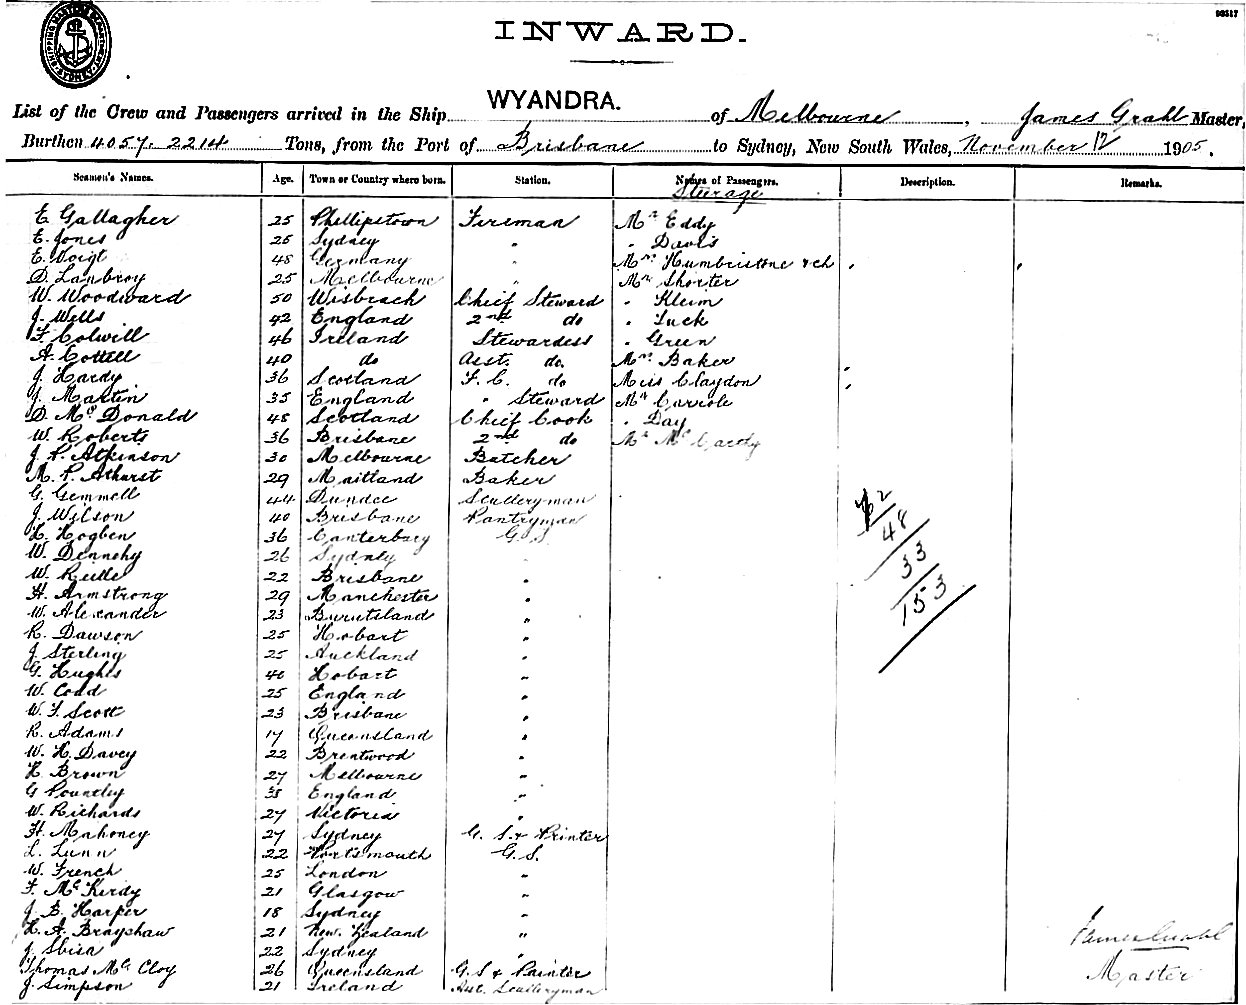 93517
SHIPPING MASTER'S DEPARTMENT SYDNEY
INWARD.
List of the Crew and Passengers arrived in the Ship WYANDRA. of Melbourne, James Grahl Master,
Burthen 4057. 2214 Tons, from the Port of Brisbane to Sydney, New South Wales, November 12 1905.
Seamen's Names. Age. Town or Country where born. Station. Names of Passengers. Description. Remarks.
Steerage
E. Gallagher 25 Phillipstown Fireman Mr Eddy
E. Jones 25 Sydney " " Davis
E. Voigt 48 Germany " Mrs Humbristone & ch
D. Lanbroy 25 Melbourne " Mr Shorter
W. Woodward 50 Wisbeach Chief Steward " Kleim
J. Wells 42 England 2nd do " Tuck
F. Colwill 46 Ireland Stewardess " Green
A. Cottell 40 do Asst. do. Mrs Baker
J. Hardy 36 Scotland F. C. do Miss Claydon
J. Martin 35 England " Steward Mr Carrole
D. McDonald 48 Scotland Chief Cook " Day
W. Roberts 36 Brisbane 2nd do Mr McCardy
J. P. Atkinson 30 Melbourne Butcher
M. P. Athurst 29 Maitland Baker
G. Gemmell 44 Dundee Sculleryman
J. Wilson 40 Brisbane Pantryman
H. Hogben 36 Canterbury G.S.
W. Dennehy 26 Sydney "
W. 22 Brisbane "
H. Armstrong 29 Manchester "
W. Alexander 23 Burntsland "
R. Dawson 25 Hobart "
J. Sterling 25 Auckland "
G. Hughes 40 Hobart "
W. Codd 25 England "
W. F. Scott 23 Brisbane "
R. Adams 17 Queensland "
W. H. Davey 22 Brentwood "
H. Brown 27 Melbourne "
G Pountley 38 England "
W. Richards 27 Victoria "
H. Mahoney 27 Sydney G. S. & Printer
L. Lunn 22 Portsmouth G.S.
W. French 25 London "
F. McKirdy 21 Glasgow "
J. B. Harper 18 Sydney "
H. A. Brayshaw 21 New Zealand "
J. Sbisa 22 Sydney "
Thomas McCloy 26 Queensland G.S & Painter
J. Simpson 21 Ireland Asst. Sculleryman
12
48
33
153
James Grahl
Master